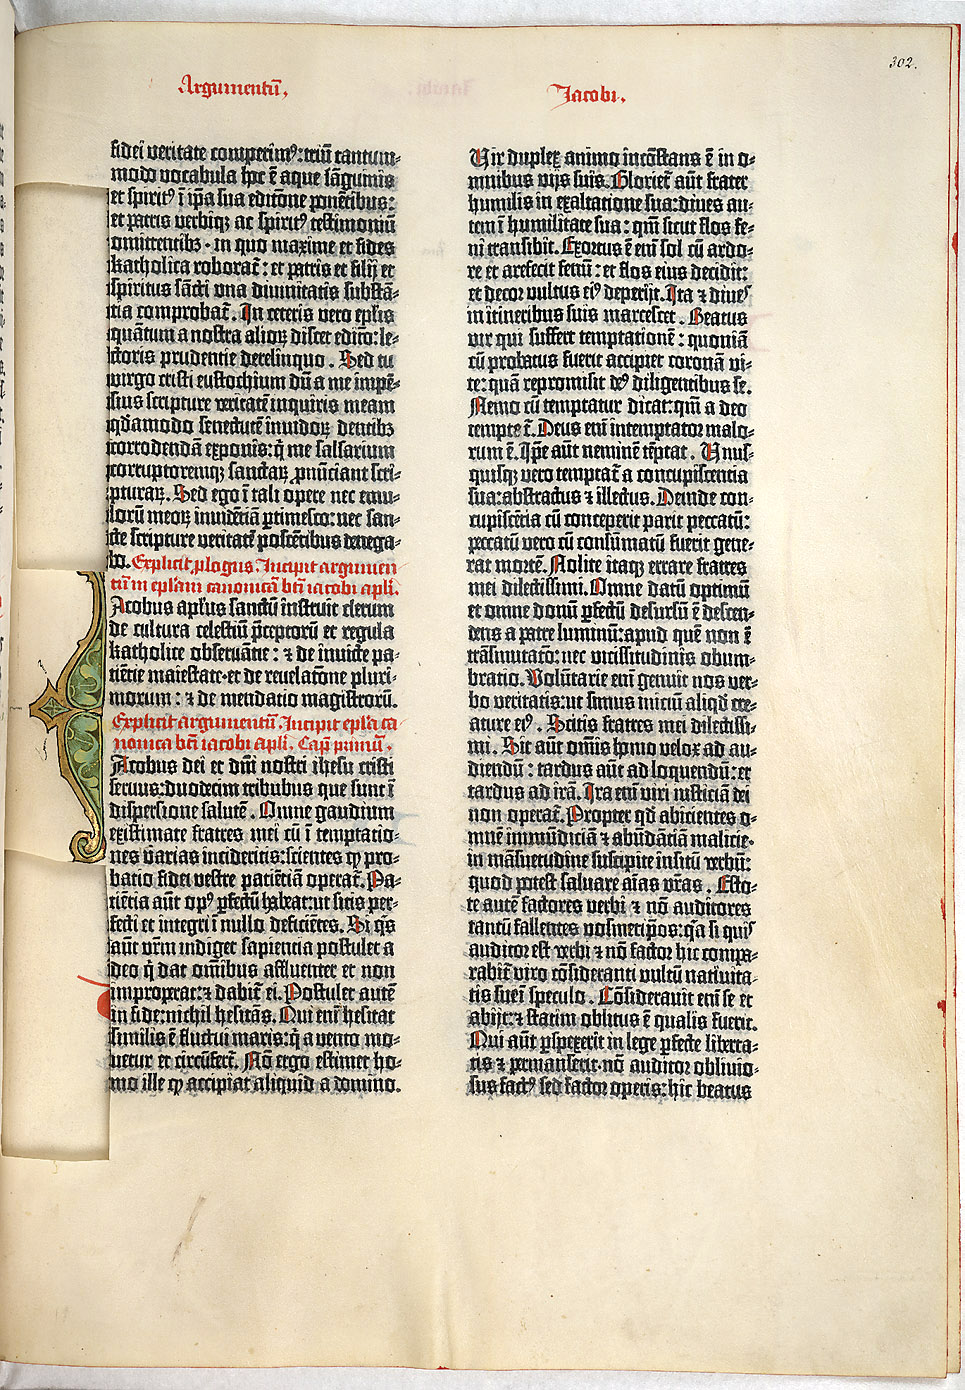 302.
Argumentū.
Jacobi.
fidei veritate comperimꝰ: triū tantum-
modo vocabula hoc ē aque sāguinis
et spiritꝰ ī ip̄a sua editōne ponētibus:
et patris verbiqꝫ ac spiritꝰ testimoniū
omittentibꝫ· in quo maxime et fides
katholica roborat̄: et patris et filij et
spiritus sāc̄ti vna diuinitatis substā-
tia comprobat̄. In ceteris vero ep̄lis
quātum a nostra alioꝝ distet editō: le-
ctoris prudentie derelinquo. Sed tu
virgo cristi eustochium dū a me impē-
sius scripture veritatē inquiris meam
qd̄amodo senectutē inuidoꝝ dentibꝫ
corrodendā exponis: q̄ me falsarium
corruptoremqꝫ sanctaꝝ pn̄unciant scri-
pturaꝝ. Sed ego ī tali opere nec emu-
loꝝ meoꝝ inuidētiā ꝑtimesco: nec san-
cte scripture veritatē poscētibus denega-
bo. Explicit ꝓlogus. Incipit argumen
tū in ep̄lam canonicā bt̄i iacobi apl̄i.
Iacobus apl̄us sanctū instruit clerum
de cultura celestiū p̄ceptorū et regula
katholice obseruātie: ⁊ de inuicte pa-
tiētie maiestate· et de reuelatōne pluri-
morum: ⁊ de mendatio magistrorū.
Explicit argumentū. Incipit ep̄la ca
nonica bt̄i iacobi apl̄i. Cap̄ primū.
Iacobus dei et dn̄i nostri ihesu cristi
seruus: duodecim tribubus que sunt ī
dispersione salutē. Omne gaudium
existimate fratres mei cū ī temptatio-
nes varias incideritis: scientes ꝙ pro-
batio fidei vestre patiētiā operat̄. Pa-
tiētia aūt opꝰ ꝑfectū habeat: ut sitis per-
fecti et integri ī nullo deficiētes. Si q̄s
aūt vr̄m indiget sapientia postulet a
deo q̄ dat om̄ibus affluenter et non
improperat: ⁊ dabit̄ ei. Postulet autē
in fide: nichil hesitās. Qui enī hesitat
similis ē fluctui maris: q̄ a vento mo-
uetur et circūfert̄. Nō ergo estimet ho-
mo ille ꝙ accipiat aliquid a domino.
Vir duplex animo incōstans ē in o-
mnibus vijs suis. Gloriet̄ aūt frater
humilis in exaltatione sua: diues au-
tem ī humilitate sua: qm̄ sicut flos fe-
ni transibit. Exortus ē enī sol cū ardo-
re et arefecit fenū: et flos eius decidit:
et decor vultus eiꝰ deperijt. Ita ⁊ diues
in itineribus suis marcescet. Beatus
vir qui suffert temptationē: quoniā
cū probatus fuerit accipiet coronā vi-
te: quā repromisit deꝰ diligentibus se.
Nemo cū temptatur dicat: qm̄ a deo
tempte t̄. Deus enī intemptator malo-
rum ē. Ip̄e aūt neminē tēptat. Vnus-
quisqꝫ vero temptat̄ a concupiscentia
sua: abstractus ⁊ illectus. Deinde con-
cupiscētia cū conceperit parit peccatū:
peccatū vero cū consūmatū fuerit gene-
rat mortē. Nolite itaqꝫ errare fratres
mei dilectissimi. Omne datū optimū
et omne donū ꝑfectū desursū ē descen-
dens a patre luminū: apud quē non ē
trāsmutatō: nec vicissitudinis obum-
bratio. Volūtarie enī genuit nos ver-
bo veritatis: ut simus iniciū aliqd̄ cre-
ature eiꝰ. Scitis fratres mei dilectissi-
mi. Sit aūt om̄is homo velox ad au-
diendū: tardus aūt ad loquendū: et
tardus ad irā. Ira enī viri iusticiā dei
non operat̄. Propter qd̄ abicientes o-
mnē inmūdiciā ⁊ abūdātiā malicie·
in māsuetudine suscipite insitū verbū:
quod potest saluare aīas vr̄as. Esto-
te autē factores verbi ⁊ nō auditores
tantū fallentes vosmetipos: q̄a si quis
auditor est verbi ⁊ nō factor hic compa-
rabit̄ viro cōsideranti vultū natiuita-
tis sue ī speculo. Cōsiderauit enī se et
abijt: ⁊ statim oblitus ē qualis fuerit.
Qui aūt ꝑspexerit in lege ꝑfecte liberta-
tis ⁊ permanserit· nō auditor obliuio-
sus factꝰ sed factor operis: hic beatus